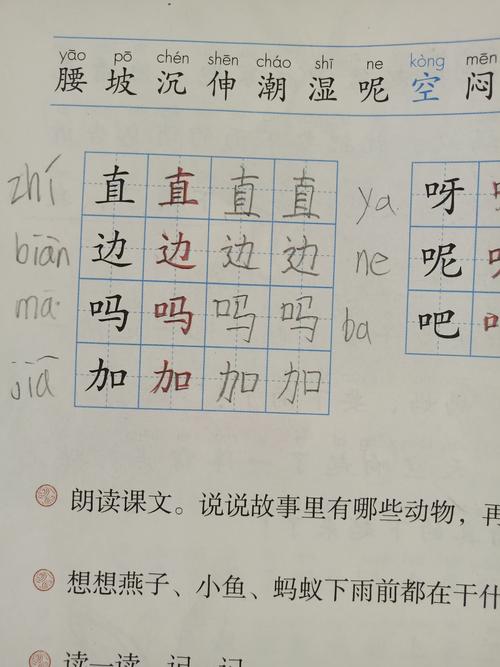 yāo pō chén shēn cháo shī ne kòng mēn
腰 坡 沉 伸 潮 湿 呢 空 闷
zhí 直 直 直 直 ya 呀
biān 边 边 边 边 ne 呢
mā 吗 吗 吗 吗 ba 吧
jiā 加 加 加 加
朗读课文。说说故事里有哪些动物，再
想想燕子、小鱼、蚂蚁下雨前都在干什
读一读，记一记